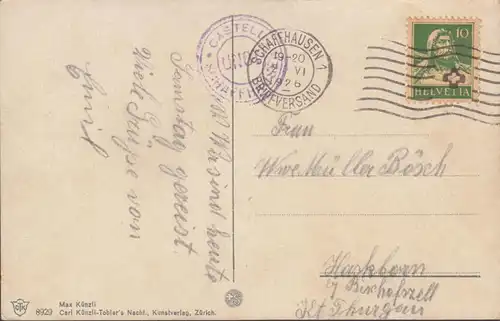 Wir sind heute
Samstag gereist.
Viele Grüsse von
Emil
CASTELL
SCHAFFHAUSEN 1
19-20
VI
BRIEFVERSAND
10
HELVETIA
Frau
Wwe. Müller Bösch
b/ Bischofszell
Kt. Thurgau
Max Künzli
8929 Carl Künzli-Tobler's Nachf., Kunstverlag, Zürich.